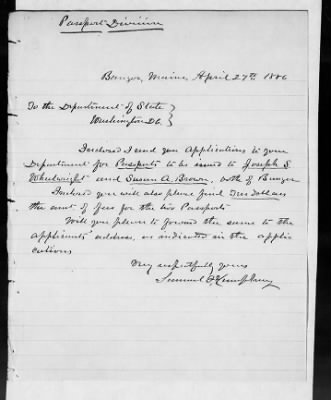 Passport Division
Bangor, Maine, April 27th 1886
To the Department of State
Washington D.C.
Inclosed I send you Applications to your
Department for Passports to be issued to Joseph S.
Wheelwright and Susan A. Brown, both of Bangor
Inclosed you will also please find Dollars
the amt of fees for the two Passports
Will you please to forward the same to the
applicants' address, as indicated in the applic
ations
Very respectfully yours
Samuel